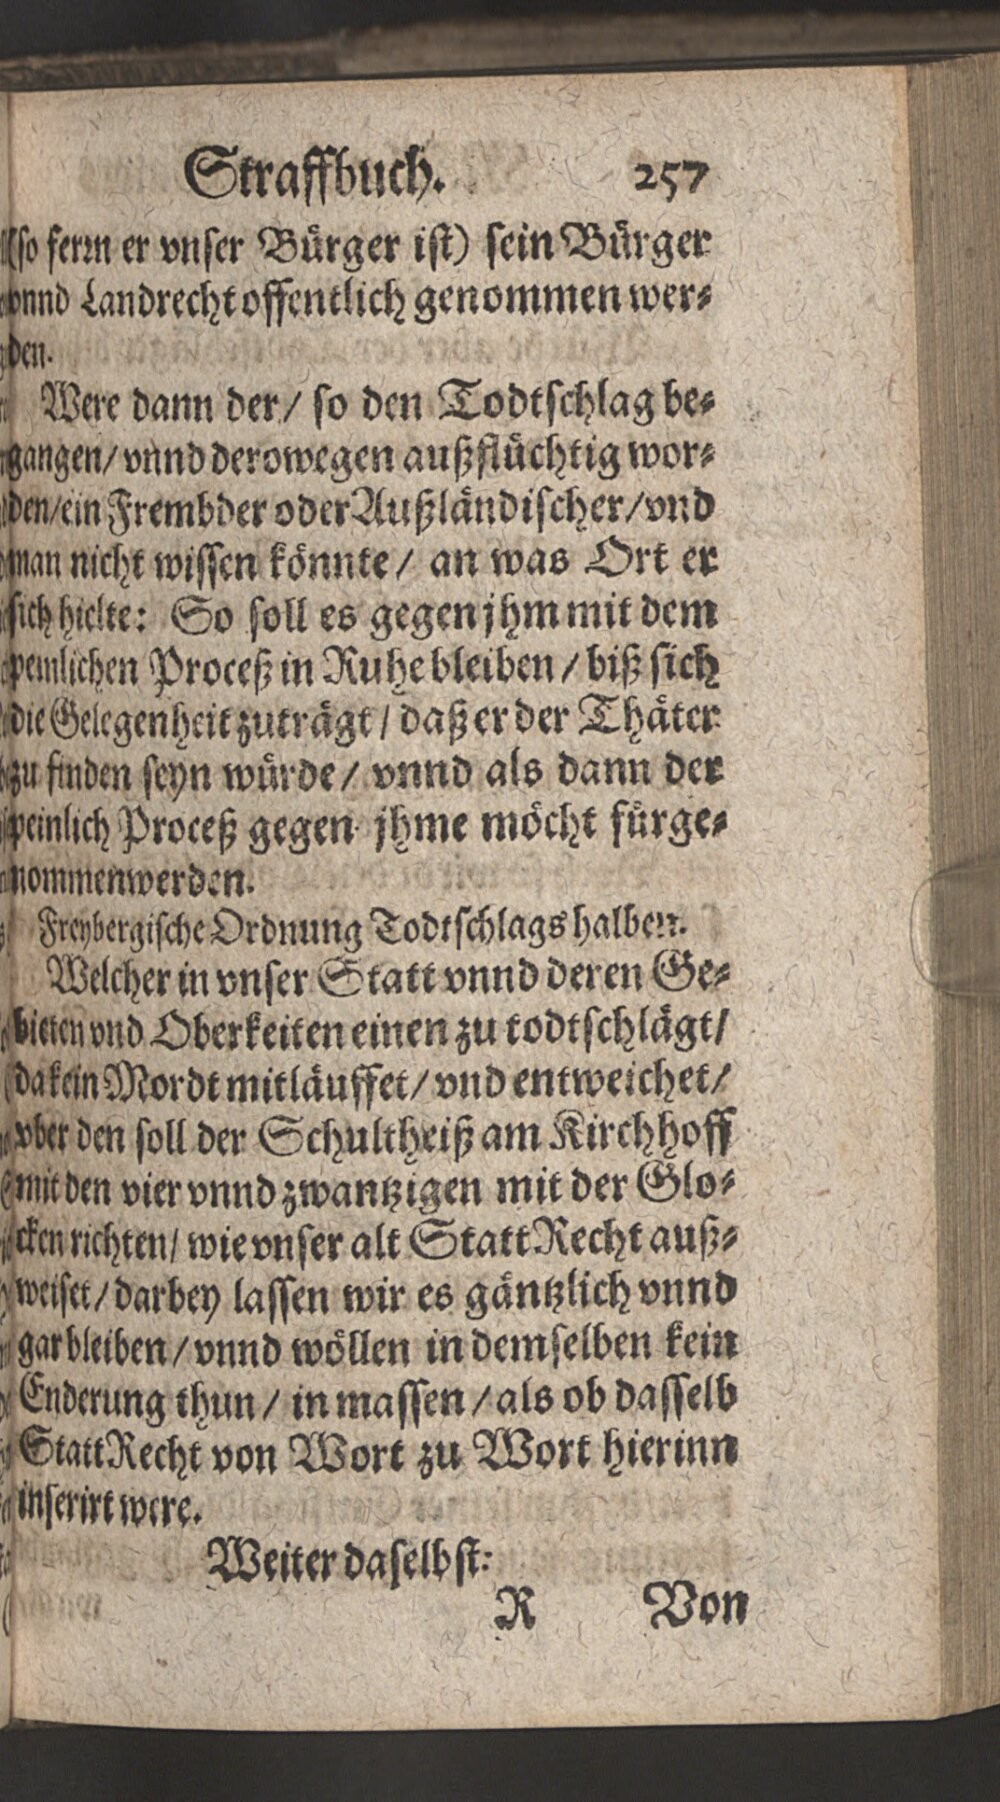 Straffbuch. 257
(so ferrn er vnser Bürger ist) sein Bürger
vnnd Landrecht offentlich genommen wer⸗
den.
Were dann der / so den Todtschlag be⸗
gangen / vnnd derowegen außflüchtig wor⸗
den / ein Frembder oder Außländischer / vnd
man nicht wissen könnte / an was Ort er
sich hielte: So soll es gegen jhm mit dem
peinlichen Proceß in Ruhe bleiben / biß sich
die Gelegenheit zuträgt / daß er der Thäter
zu finden seyn würde / vnnd als dann der
peinlich Proceß gegen jhme möcht fürge⸗
nommen werden.
Freybergische Ordnung Todtschlags halben.
Welcher in vnser Statt vnnd deren Ge⸗
bieten vnd Oberkeiten einen zu todtschlägt /
da kein Mordt mitläuffet / vnd entweichet /
vber den soll der Schultheiß am Kirchhoff
mit den vier vnnd zwantzigen mit der Glo⸗
cken richten / wie vnser alt Statt Recht auß⸗
weiset / darbey lassen wir es gäntzlich vnnd
gar bleiben / vnnd wöllen in demselben kein
Enderung thun / in massen / als ob dasselb
Statt Recht von Wort zu Wort hierinn
inserirt were.
Weiter daselbst:
R Von